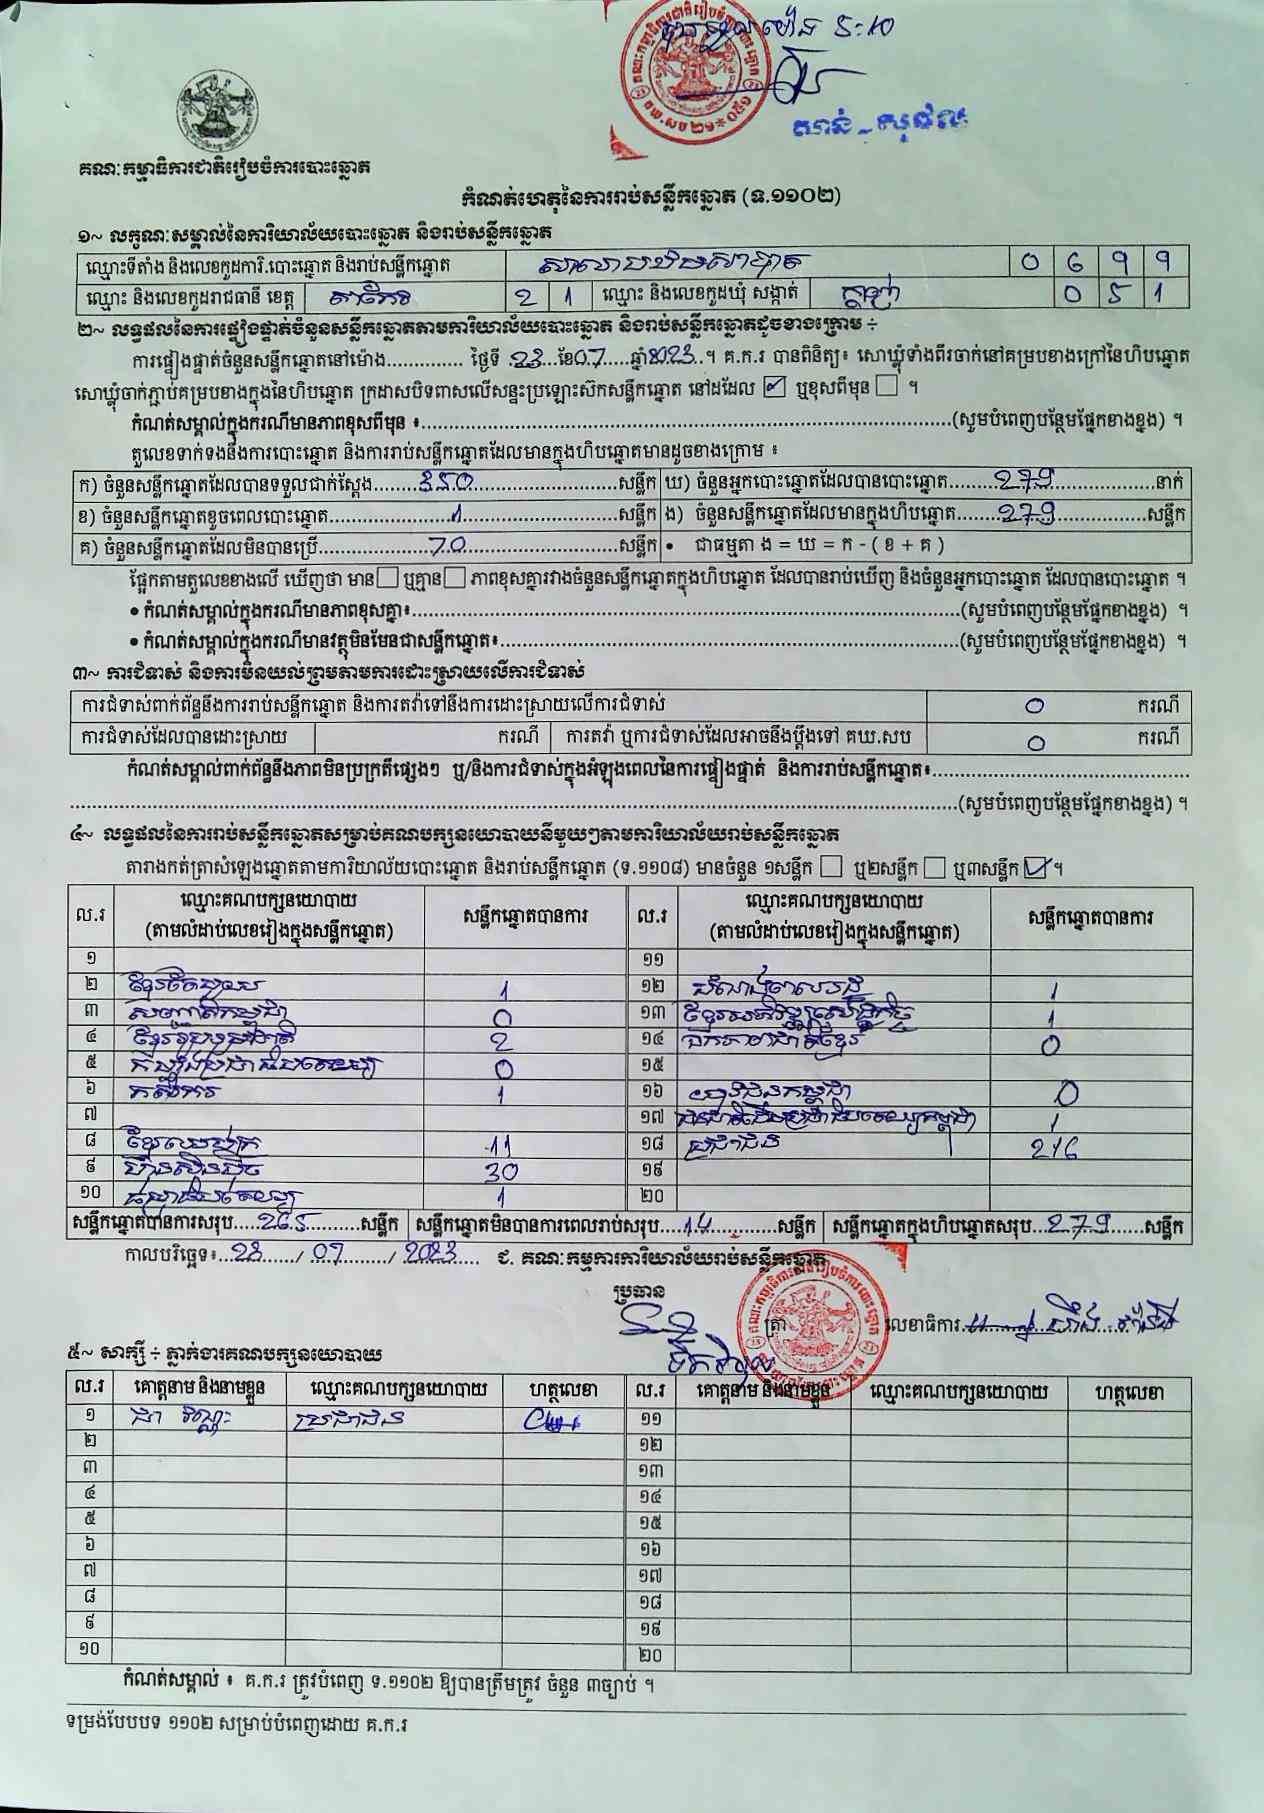 បានទទួលម៉ោង 5:10
គណៈកម្មាធិការជាតិរៀបចំការបោះឆ្នោត
កំណត់ហេតុនៃការរាប់សន្លឹកឆ្នោត (ទ.១១០២)
១~ លក្ខណៈសម្គាល់នៃការិយាល័យបោះឆ្នោត និងរាប់សន្លឹកឆ្នោត
ឈ្មោះទីតាំង និងលេខកូដការិ.បោះឆ្នោត និងរាប់សន្លឹកឆ្នោត 0 6 9 9
ឈ្មោះ និងលេខកូដរាជធានី ខេត្ត តាកែវ 2 1 ឈ្មោះ និងលេខកូដឃុំ សង្កាត់ 0 5 1
២~ លទ្ធផលនៃការផ្ទៀងផ្ទាត់ចំនួនសន្លឹកឆ្នោតតាមការិយាល័យបោះឆ្នោត និងរាប់សន្លឹកឆ្នោតដូចខាងក្រោម ÷
ការផ្ទៀងផ្ទាត់ចំនួនសន្លឹកឆ្នោតនៅម៉ោង.............. ថ្ងៃទី 23 ខែ 07 ឆ្នាំ 2023 ។ គ.ក.រ បានពិនិត្យ៖ សោឃ្លុំទាំងពីរចាក់នៅគម្របខាងក្រៅនៃហិបឆ្នោត
សោឃ្លុំចាក់ភ្ជាប់គម្របខាងក្នុងនៃហិបឆ្នោត ក្រដាសបិទពាសលើសន្ទះប្រឡោះស៊កសន្លឹកឆ្នោត នៅដដែល ☑ ឬខុសពីមុន ☐ ។
កំណត់សម្គាល់ក្នុងករណីមានភាពខុសពីមុន ៖..............(សូមបំពេញបន្ថែមផ្នែកខាងខ្នង) ។
តួលេខទាក់ទងនឹងការបោះឆ្នោត និងការរាប់សន្លឹកឆ្នោតដែលមានក្នុងហិបឆ្នោតមានដូចខាងក្រោម ៖
ក) ចំនួនសន្លឹកឆ្នោតដែលបានទទួលជាក់ស្តែង........350........សន្លឹក ឃ) ចំនួនអ្នកបោះឆ្នោតដែលបានបោះឆ្នោត........279........នាក់
ខ) ចំនួនសន្លឹកឆ្នោតខូចពេលបោះឆ្នោត........1........សន្លឹក ង) ចំនួនសន្លឹកឆ្នោតដែលមានក្នុងហិបឆ្នោត........279........សន្លឹក
គ) ចំនួនសន្លឹកឆ្នោតដែលមិនបានប្រើ........70........សន្លឹក • ជាធម្មតា ង = ឃ = ក - ( ខ + គ )
ផ្អែកតាមតួលេខខាងលើ ឃើញថា មាន ☐ ឬគ្មាន ☐ ភាពខុសគ្នារវាងចំនួនសន្លឹកឆ្នោតក្នុងហិបឆ្នោត ដែលបានរាប់ឃើញ និងចំនួនអ្នកបោះឆ្នោត ដែលបានបោះឆ្នោត ។
• កំណត់សម្គាល់ក្នុងករណីមានភាពខុសគ្នា៖..............(សូមបំពេញបន្ថែមផ្នែកខាងខ្នង) ។
• កំណត់សម្គាល់ក្នុងករណីមានវត្ថុមិនមែនជាសន្លឹកឆ្នោត៖..............(សូមបំពេញបន្ថែមផ្នែកខាងខ្នង) ។
៣~ ការជំទាស់ និងការមិនយល់ព្រមតាមការដោះស្រាយលើការជំទាស់
ការជំទាស់ពាក់ព័ន្ធនឹងការរាប់សន្លឹកឆ្នោត និងការតវ៉ាទៅនឹងការដោះស្រាយលើការជំទាស់ 0 ករណី
ការជំទាស់ដែលបានដោះស្រាយ ករណី ការតវ៉ា ឬការជំទាស់ដែលអាចនឹងប្តឹងទៅ គឃ.សប 0 ករណី
កំណត់សម្គាល់ពាក់ព័ន្ធនឹងភាពមិនប្រក្រតីផ្សេងៗ ឬ/និងការជំទាស់ក្នុងអំឡុងពេលនៃការផ្ទៀងផ្ទាត់ និងការរាប់សន្លឹកឆ្នោត៖..............
..............(សូមបំពេញបន្ថែមផ្នែកខាងខ្នង) ។
៤~ លទ្ធផលនៃការរាប់សន្លឹកឆ្នោតសម្រាប់គណបក្សនយោបាយនីមួយៗតាមការិយាល័យរាប់សន្លឹកឆ្នោត
តារាងកត់ត្រាសំឡេងឆ្នោតតាមការិយាល័យបោះឆ្នោត និងរាប់សន្លឹកឆ្នោត (ទ.១១០៨) មានចំនួន ១សន្លឹក ☐ ឬ២សន្លឹក ☐ ឬ៣សន្លឹក ☑ ។
ល.រ ឈ្មោះគណបក្សនយោបាយ (តាមលំដាប់លេខរៀងក្នុងសន្លឹកឆ្នោត) សន្លឹកឆ្នោតបានការ ល.រ ឈ្មោះគណបក្សនយោបាយ (តាមលំដាប់លេខរៀងក្នុងសន្លឹកឆ្នោត) សន្លឹកឆ្នោតបានការ
១ ១១
២ 1 ១២ 1
៣ សញ្ជាតិកម្ពុជា 0 ១៣ 1
៤ ខ្មែររួបរួមជាតិ 2 ១៤ ឯកភាពជាតិខ្មែរ 0
៥ 0 ១៥
៦ កសិករ 1 ១៦ យុវជនកម្ពុជា 0
៧ ១៧ 1
៨ ខ្មែរឈប់ក្រ 11 ១៨ ប្រជាជន 216
៩ ហ៊្វុនស៊ិនប៉ិច 30 ១៩
១០ 1 ២០
សន្លឹកឆ្នោតបានការសរុប.....265........សន្លឹក សន្លឹកឆ្នោតមិនបានការពេលរាប់សរុប....14........សន្លឹក សន្លឹកឆ្នោតក្នុងហិបឆ្នោតសរុប..279......សន្លឹក
កាលបរិច្ឆេទ៖..23....../ 07 ....../ 2023 ..... ជ. គណៈកម្មការការិយាល័យរាប់សន្លឹកឆ្នោត
ប្រធាន
ត្រា លេខាធិការ
៥~ សាក្សី ÷ ភ្នាក់ងារគណបក្សនយោបាយ
ល.រ គោត្តនាម និងនាមខ្លួន ឈ្មោះគណបក្សនយោបាយ ហត្ថលេខា ល.រ គោត្តនាម និងនាមខ្លួន ឈ្មោះគណបក្សនយោបាយ ហត្ថលេខា
១ ជា វណ្ណៈ ប្រជាជន ១១
២ ១២
៣ ១៣
៤ ១៤
៥ ១៥
៦ ១៦
៧ ១៧
៨ ១៨
៩ ១៩
១០ ២០
កំណត់សម្គាល់ ៖ គ.ក.រ ត្រូវបំពេញ ទ.១១០២ ឱ្យបានត្រឹមត្រូវ ចំនួន ៣ច្បាប់ ។
ទម្រង់បែបបទ ១១០២ សម្រាប់បំពេញដោយ គ.ក.រ